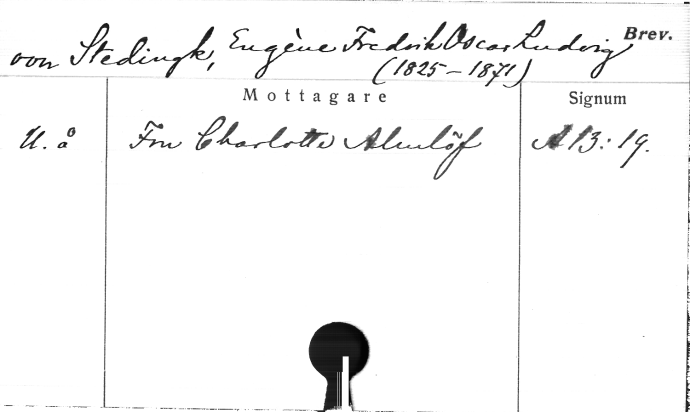 von Stedingk, Eugène Fredrik Oscar Ludvig Brev.
(1825-1871)
Mottagare Signum
U. å Fru Charlotte Almlöf A 13:19.